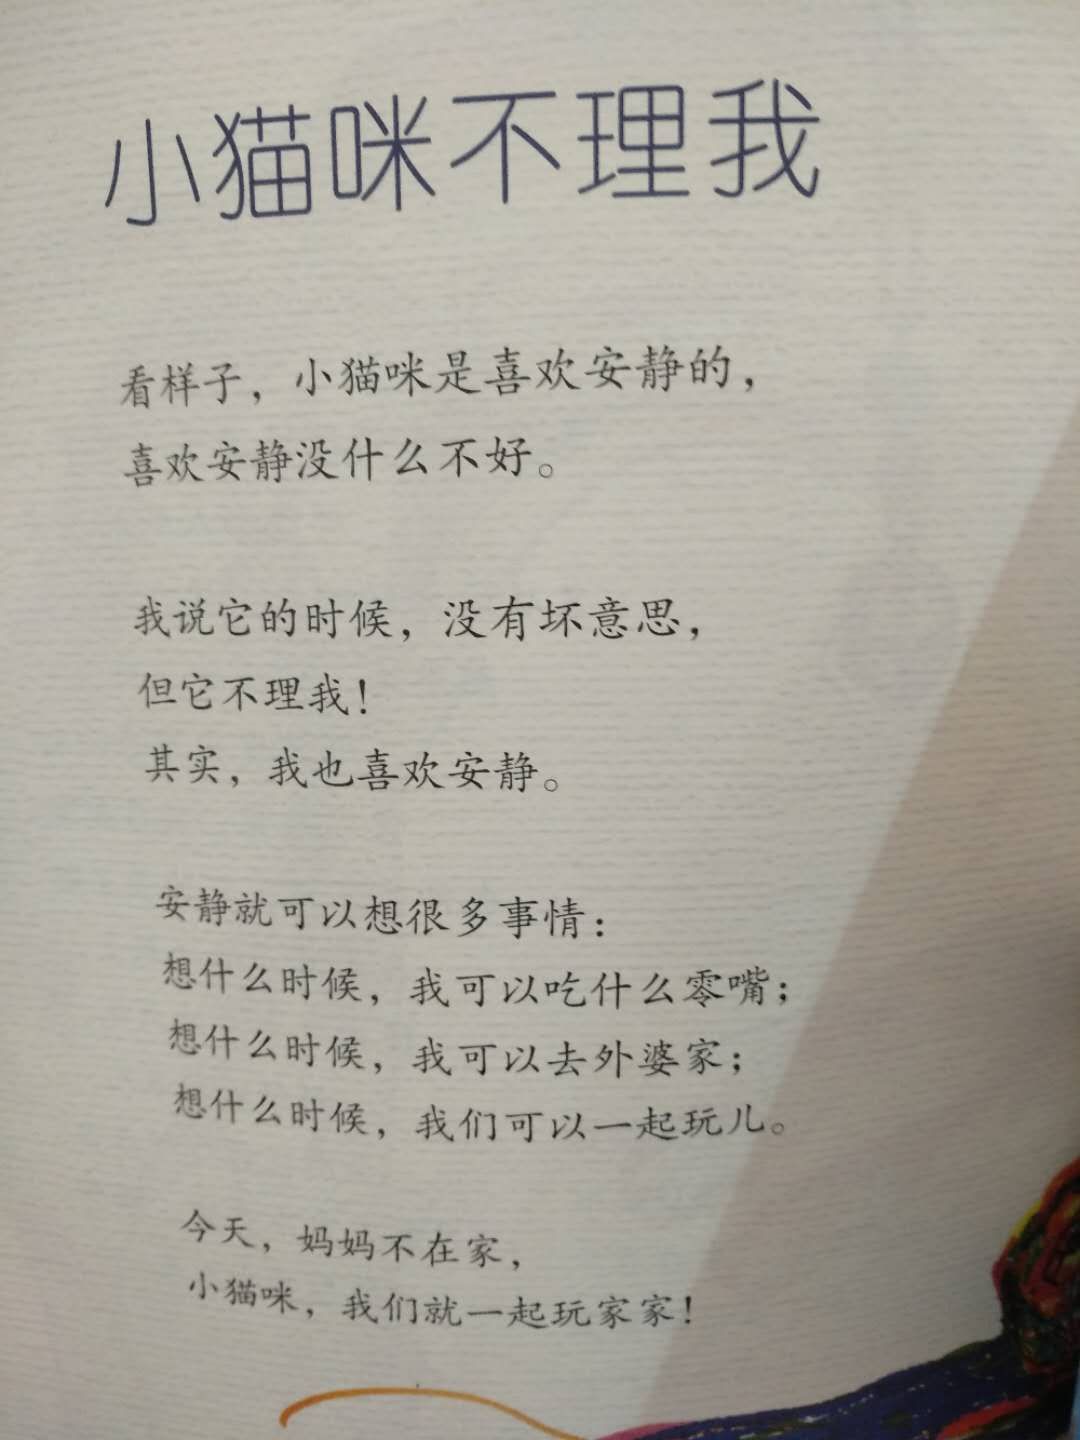 小猫咪不理我
看样子，小猫咪是喜欢安静的，
喜欢安静没什么不好。
我说它的时候，没有坏意思，
但它不理我！
其实，我也喜欢安静。
安静就可以想很多事情：
想什么时候，我可以吃什么零嘴；
想什么时候，我可以去外婆家；
想什么时候，我们可以一起玩儿。
今天，妈妈不在家，
小猫咪，我们就一起玩家家！